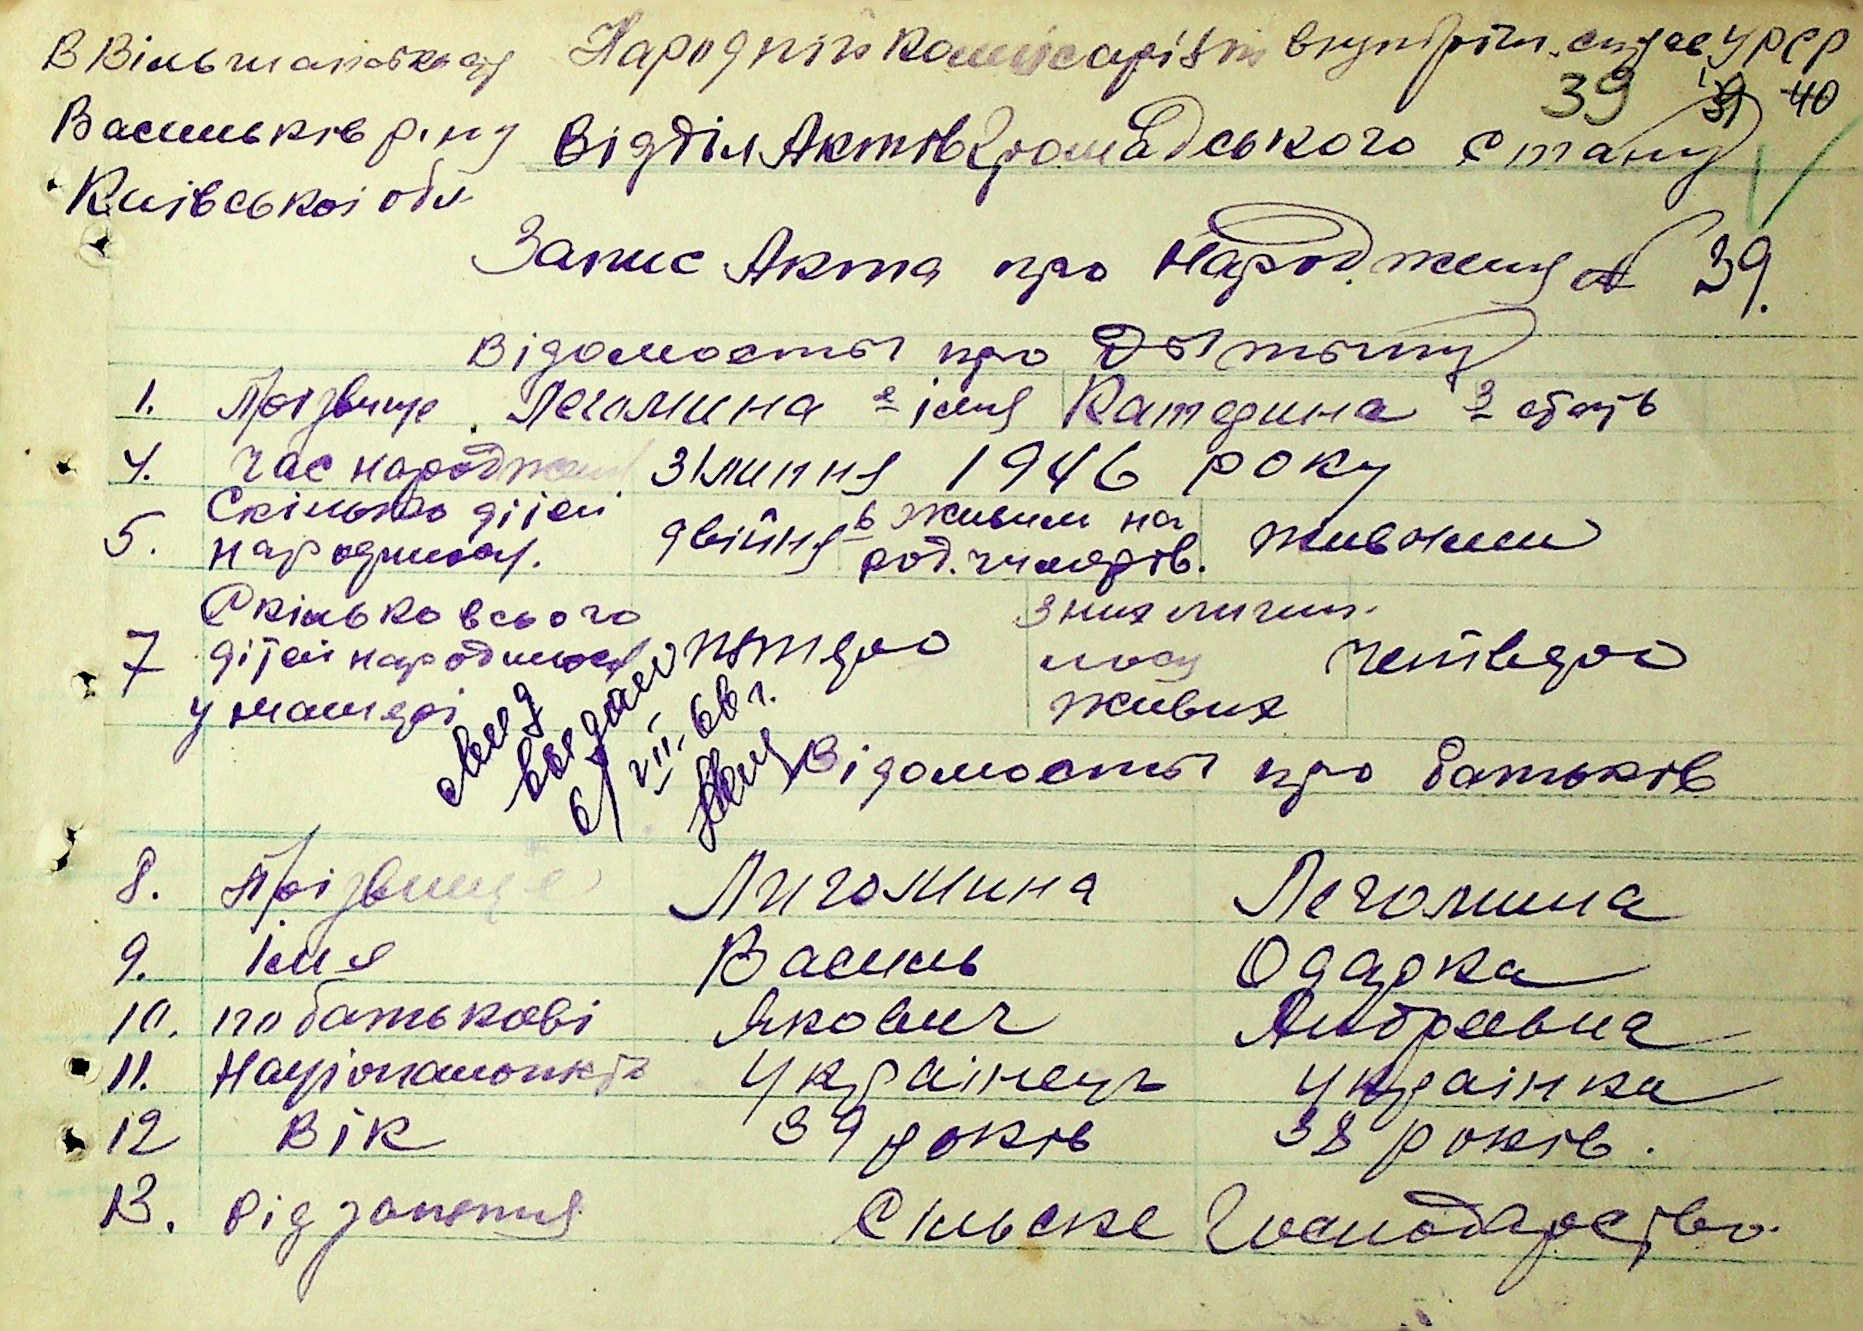 В Вільшанську Народний комісаріят внутріш. справ УРСР
39 39 40
Васильків р-ну Відділ Актів Громадського Стану
Київської обл
Запис Акта про народження № 39.
Відомосты про дытыну
1. Прізвище Легомина 2 імя Катерина 3 стать
4. Час народження 31 липня 1946 року
5. Скілько дітей народилось. двійня 6 живим народ. чи мертв. живыми
7 Скілько всього дітей народилось у матері пятеро З них лишилось живих четверо
выдано
6/VIII-66 г.
Відомосты про батьків
8. Прізвище Лигомина Легомина
9. імя Василь Одарка
10. по батькові Якович Андреевна
11. Національність Українець Українка
12 Вік 39 років 38 років.
13. Рід заняття Сільске Господарство.